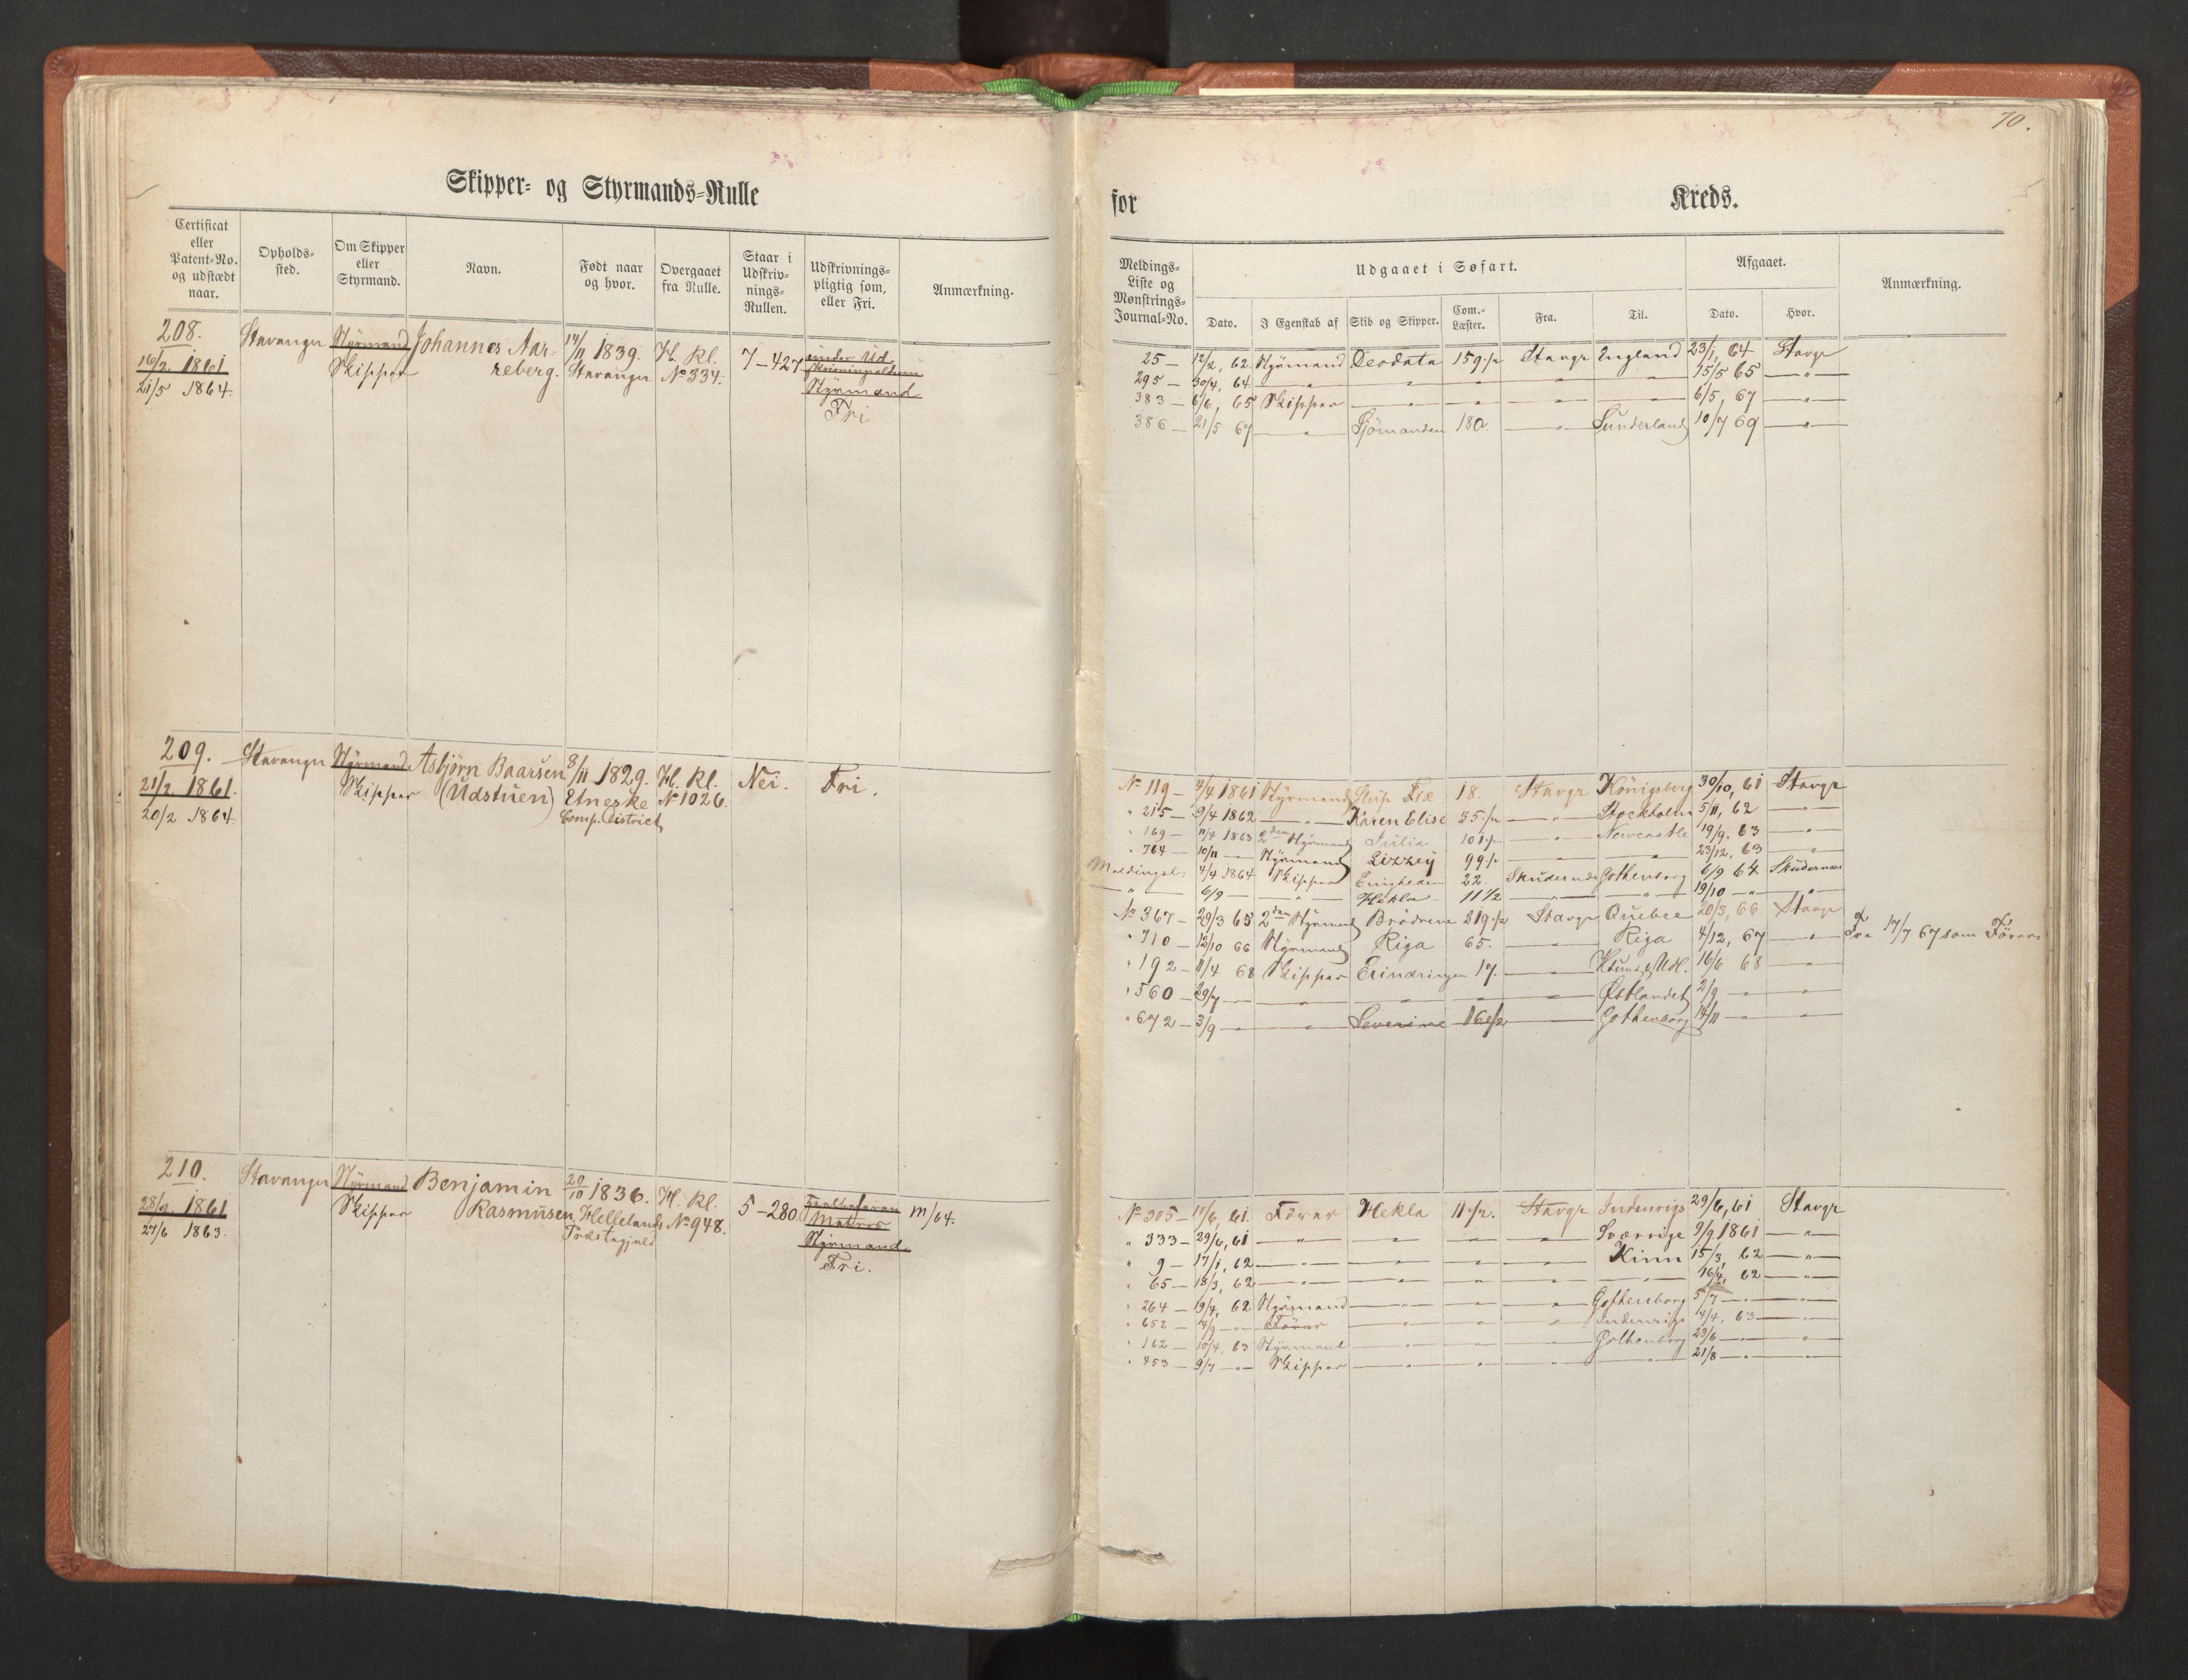 Skipper- og Styrmands-Rulle
Certificat eller Patent-No. og udstædt naar.
Opholds-sted.
Om Skipper eller Styrmand.
Navn.
Født naar og hvor.
Overgaaet fra Rulle.
Staar i Udskriv-nings-Rullen.
Udskrivnings-pligtig som, eller Fri.
Anmærkning.
208. Stavanger Styrmand Johannes Aar- 14/11 1839. H. Kl. 7-427 under Ud
16/2 1861 Skipper reberg. Stavanger No 334. skrivningsalderen
21/5 1864 Styrmand
Fri
209. Stavanger Styrmand Asbjørn Baarsen 8/11 1829. H. Kl. Nei. Fri.
21/2 1861. Skipper (Udstuen) Etneske No 1026.
20/2 1864. Comp. District
210. Stavanger Styrmand Benjamin 20/10 1836. H. Kl. 5-280. m/64.
28/2 1861 Skipper Rasmusen Hellelands No 948. Matros
27/6 1863. Præstegjeld Styrmand
Fri.
70.
for Kreds.
Meldings-Liste og Mønstrings-Journal-No.
Udgaaet i Søfart.
Dato.
I Egenskab af
Skib og Skipper.
Com.-Læster.
Fra.
Til.
Afgaaet.
Dato.
Hvor.
Anmærkning.
25 — 12/2, 62 Styrmand Deodata 159 1/2 Stavgr England 23/1, 64 Stavgr
295 — 30/4, 64 — " — " — " — " — " 15/5 65 — " —
383 — 6/6, 65 Skipper — " — " — " — " 6/5, 67 — " —
386 — 21/5 67 — " — Sjömanden 180. — " — Sunderland 10/7 69 — " —
No 119 — 4/4 1861 Styrmand Slup Fix 18. Stavgr Königsberg 30/10, 61 Stavgr
" 215 — 9/4 1862 — " — Karen Elise 35 1/2 — " — Stockholm 5/11, 62 — " —
" 169 — 11/4 1863 2den Styrmand Julia 101 1/2 — " — Newcastle 19/9. 63 — " —
" 764 — 10/11 — Styrmand Lizzey 99 1/2 — " — " — 23/12, 63 — " —
Meldingsl: 4/4 1864 Skipper Enigheden 22. Skudesnæs Gothenborg 6/9 64 Skudesnæs
— " — 6/9 — " — Hekla 11 1/2 — " — " — 19/10 — " — " —
No 367 — 29/3 65 2den Styrmand Brödrene 219 1/2 Stavgr Quebec 20/3, 66 Stavgr
" 710 — 12/10 66 Styrmand Riga 65. — " — Riga 4/12, 67 — " — Fra 17/7 67 som Fører
" 192 — 11/4 68 Skipper Erindringen 17. — " — 16/6 68 — " —
" 560 — 29/7 — " — " — " — " — Østlandet 2/9 — " — " —
" 672 — 3/9 — " — " — Severine 16 1/2 — " — Gothenborg 14/11 — " — " —
No 305 — 11/6, 61. Fører Hekla 11 1/2. Stavgr Indenrigs 29/6, 61 Stavgr
" 333 — 29/6, 61 — " — " — " — " — Sverrige 9/9 1861 — " —
" 9 — 17/1, 62 — " — " — " — " — Kinn 15/3, 62 — " —
" 65 — 18/3, 62 — " — " — " — " — " — 16/4, 62 — " —
" 264 — 19/4, 62 Styrmand — " — " — " — Gothenborg 5/7 — " — " —
" 652 — 14/9 — " — Fører — " — " — " — Indenrigs 4/4, 63 — " —
" 162 — 10/4, 63 Styrmand — " — " — " — Gothenborg 23/6 — " — " —
" 453 — 9/7 — " — Skipper — " — " — " — " — 21/8 — " — " —